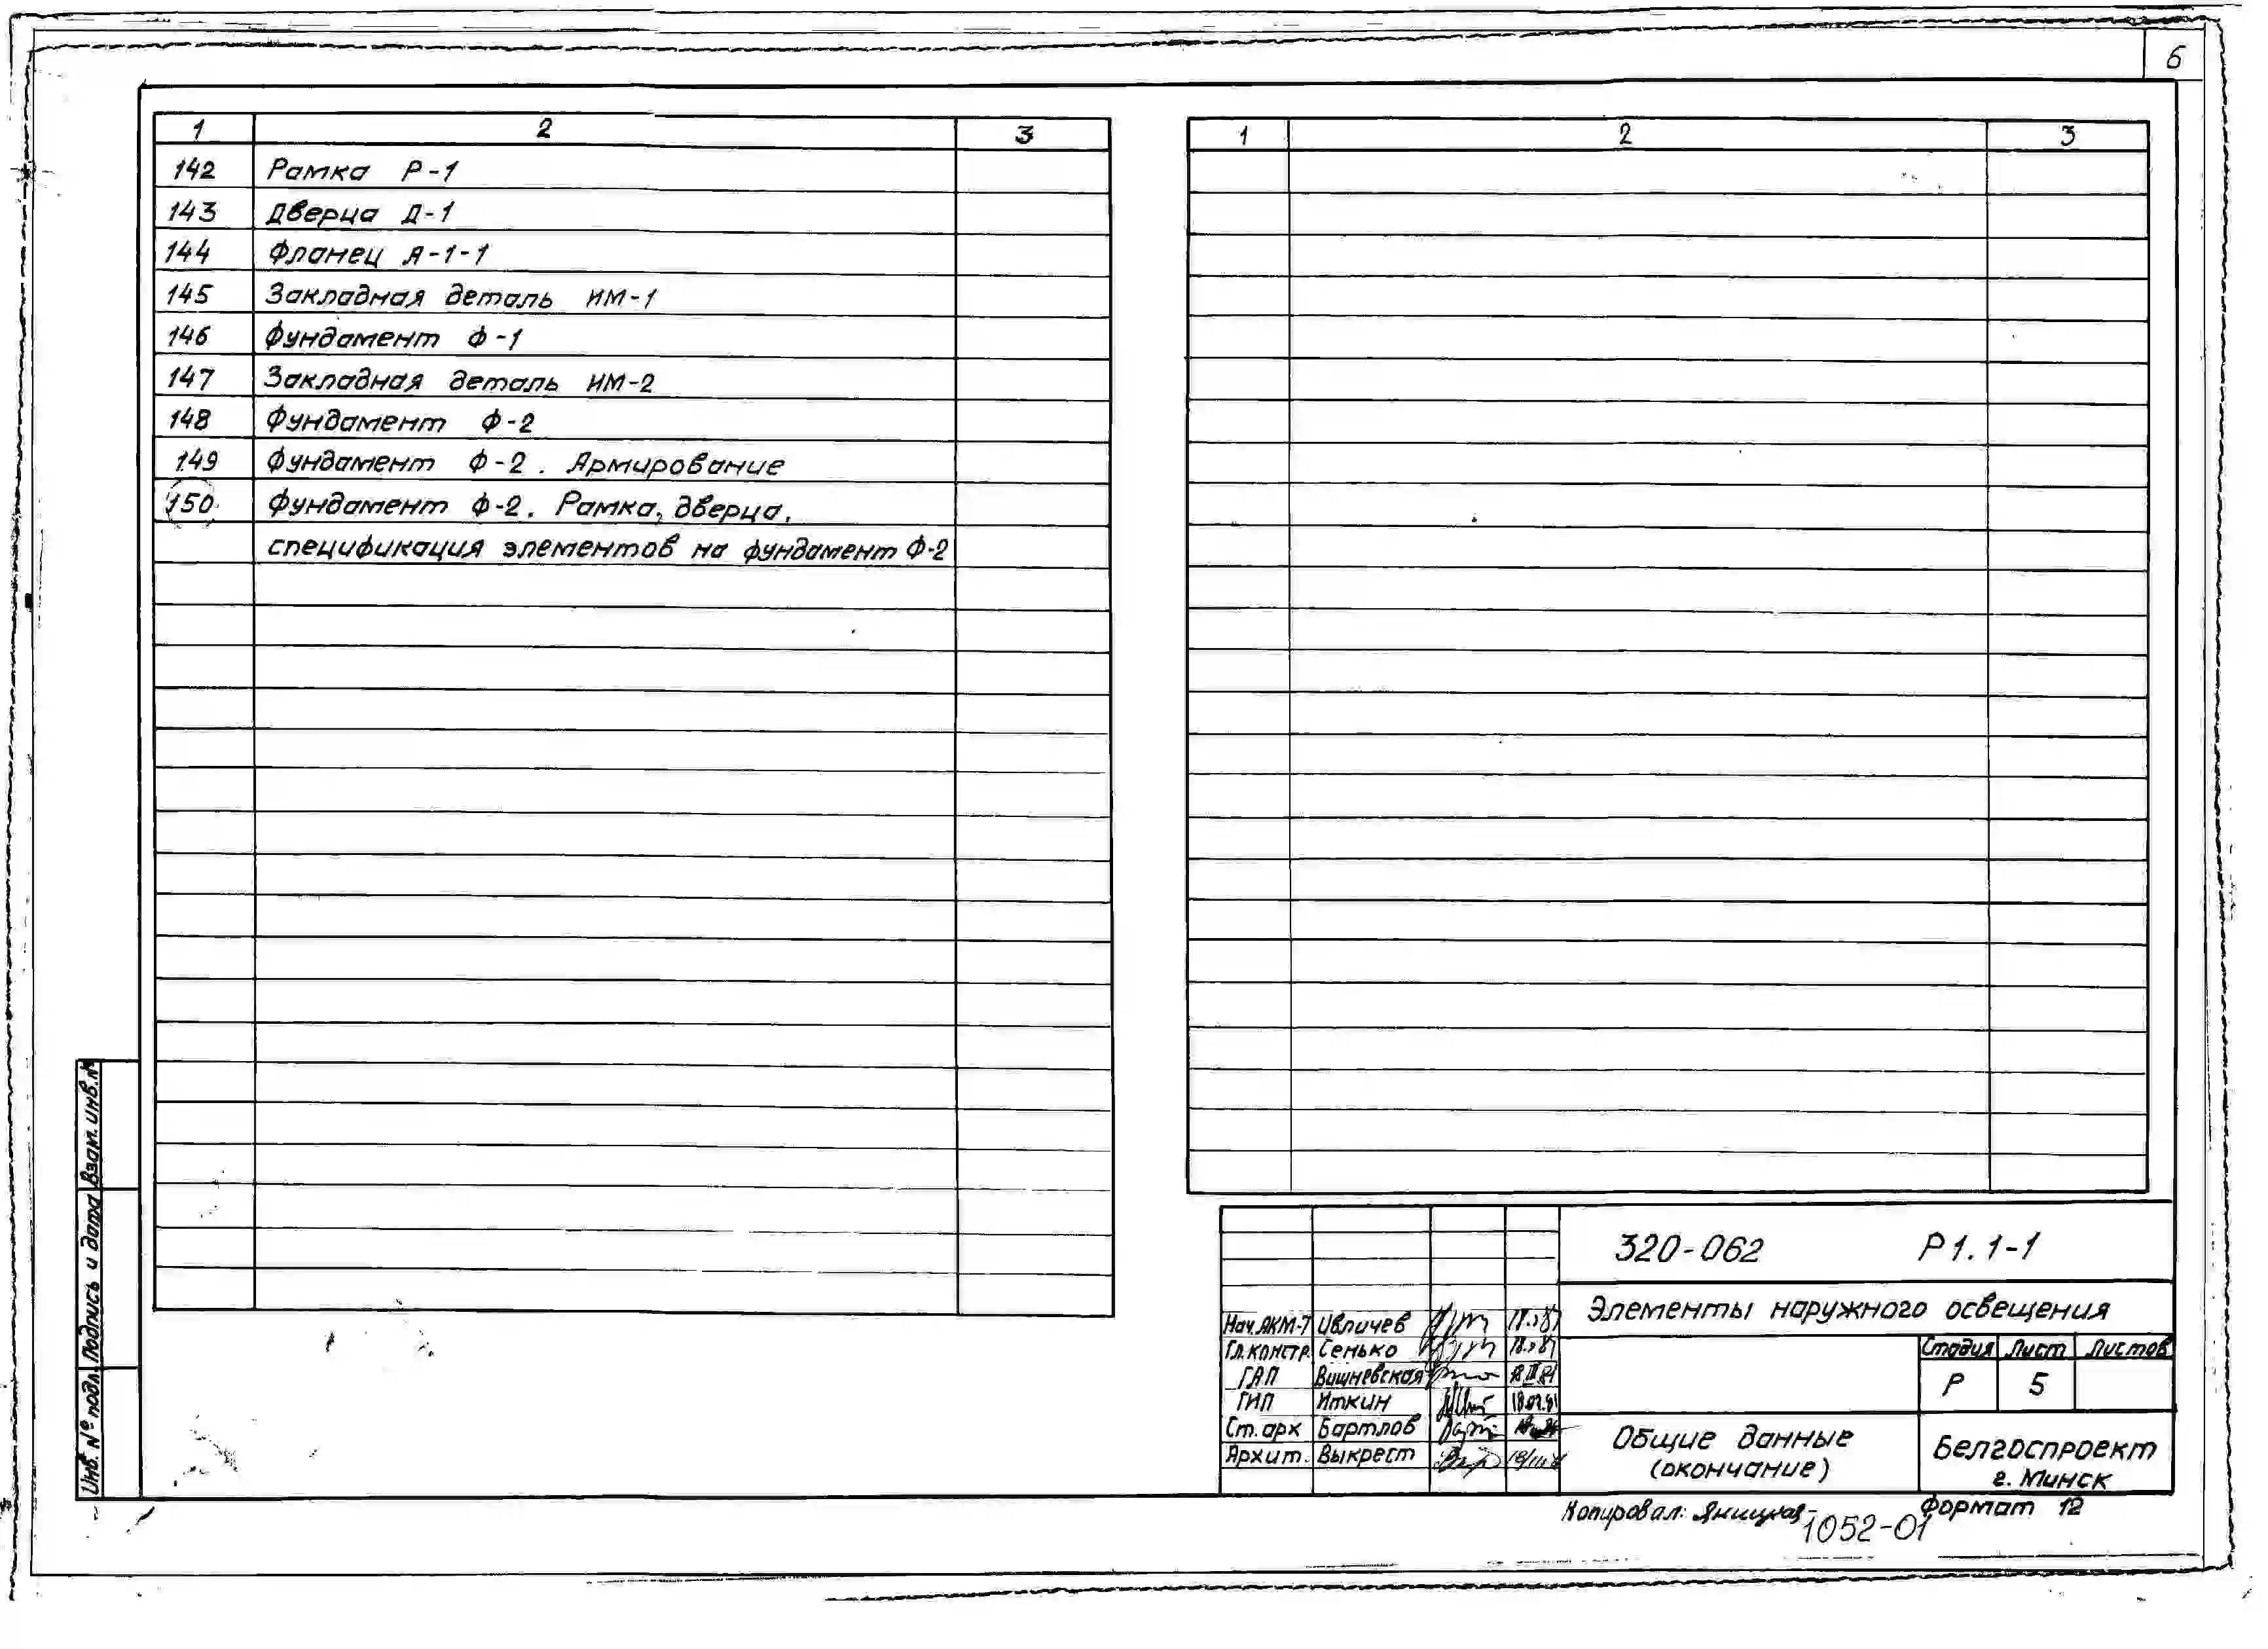 6
1 2 3
142 Рамка Р-1
143 Дверца Д-1
144 Фланец А-1-1
145 Закладная деталь ИМ-1
146 Фундамент Ф-1
147 Закладная деталь ИМ-2
148 Фундамент Ф-2
149 Фундамент Ф-2. Армирование
150 Фундамент Ф-2. Рамка, дверца,
спецификация элементов на фундамент Ф-2
1 2 3
Взам. инв. №
Подпись и дата
Инв. № подл.
320-062 Р1.1-1
Элементы наружного освещения
Нач. АКМ-7 Ивличев
Гл. констр. Сенько
ГАП Вишневская
ГИП Иткин
Ст. арх Бартлов
Архит. Выкрест
Стадия Лист Листов
Р 5
Общие данные
(окончание)
Белгоспроект
г. Минск
Копировал: Яницкая
Формат 12
1052-01